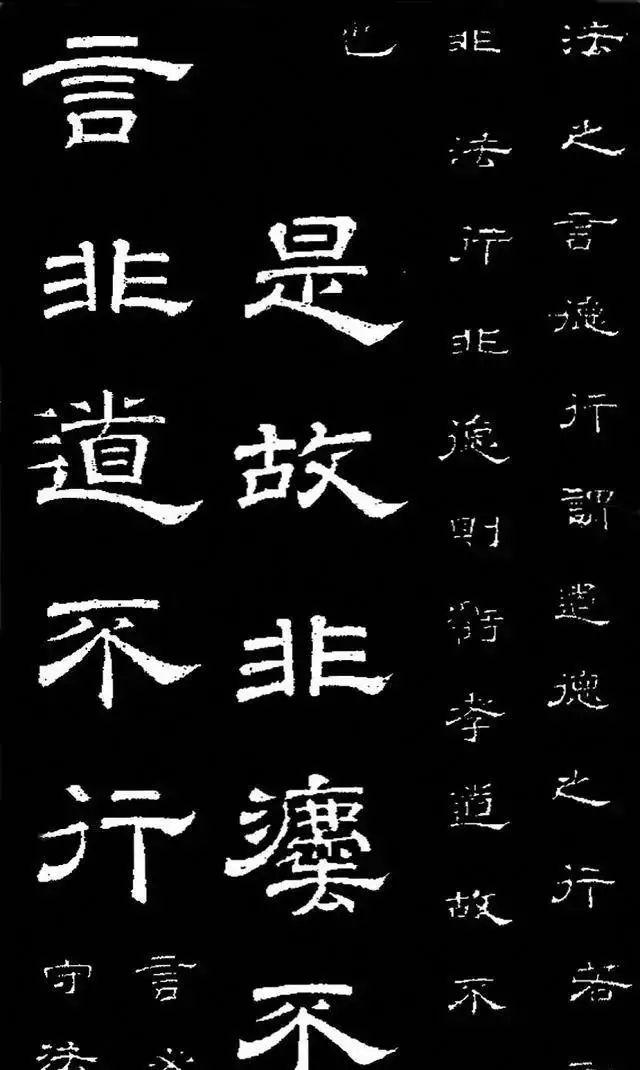 法之言德行謂道德之行若
非法行非德則虧孝道故不
也
是故非灋不
言非道不行
言必
守法